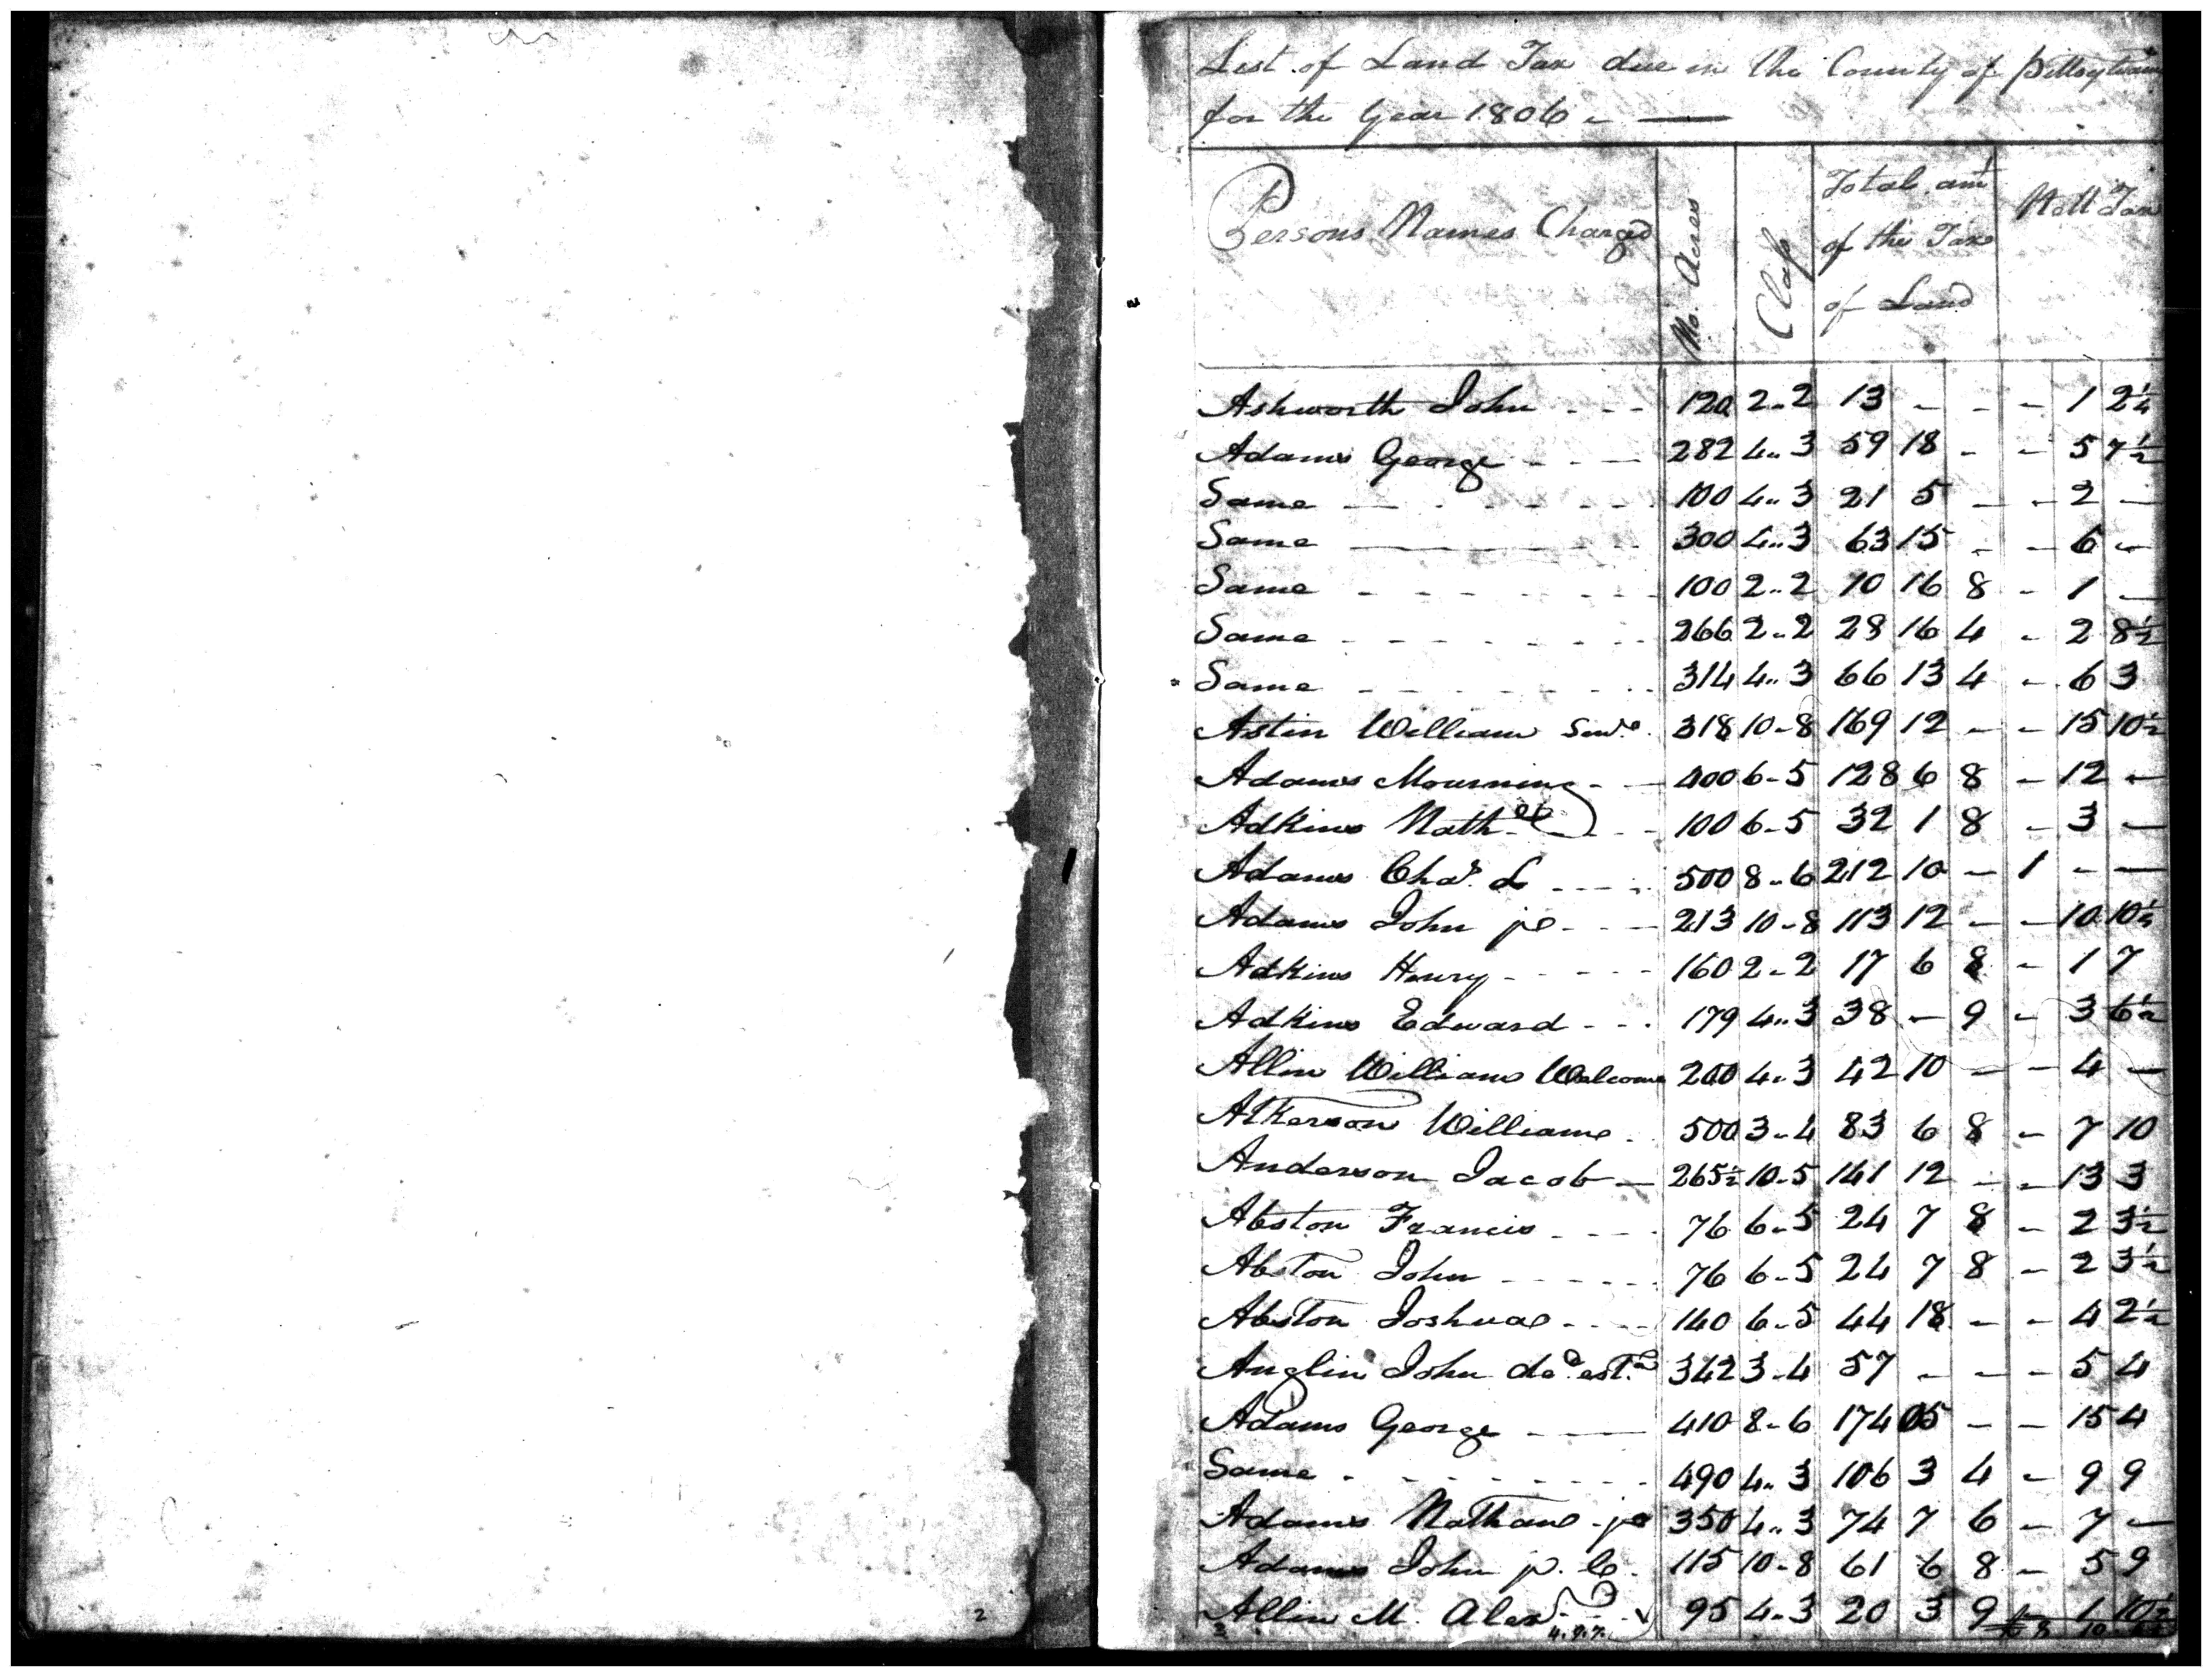 List of Land Tax due in the County of Pittsylvania
for the Year 1806
Persons Names Charged No. Acres Class Total amt of the Tax of Land Tax
Ashworth John - - - 120 2..2 13 - - - 1 2¼
Adams George - - - 282 4..3 59 18 - - 5 7½
Same - - - 100 4..3 21 5 - - 2 -
Same - - - 300 4..3 63 15 - - 6 -
Same - - - 100 2..2 10 16 8 - 1 -
Same - - - 266 2..2 28 16 4 - 2 8½
Same - - - 314 4..3 66 13 4 - 6 3
Astin William Senr. 318 10-8 169 12 - - 15 10½
Adams Mourning - - 400 6-5 128 6 8 - 12 -
Adkins Nathel - - 100 6-5 32 1 8 - 3 -
Adams Chas. L - - - 500 8-6 212 10 - 1 - -
Adams John jr - - - 213 10-8 113 12 - - 10 10½
Adkins Henry - - - 160 2-2 17 6 8 - 1 7
Adkins Edward - - - 179 4..3 38 - 9 - 3 6½
Allin William Welcome 200 4..3 42 10 - - 4 -
Atkerson William - 500 3-4 83 6 8 - 7 10
Anderson Jacob - 265½ 10-5 141 12 - - 13 3
Abston Francis - - - 76 6-5 24 7 8 - 2 3½
Abston John - - - 76 6-5 24 7 8 - 2 3½
Abston Joshua - - - 140 6-5 44 18 - - 4 2½
Anglin John decd. est. 342 3-4 57 - - - 5 4
Adams George - - 410 8-6 174 05 - - 15 4
Same - - - 490 4..3 106 3 4 - 9 9
Adams Nathan jr 350 4..3 74 7 6 - 7 -
Adams John p. C. 115 10-8 61 6 8 - 5 9
Allin M. Alexr - - 95 4..3 20 3 9 - 1 10½
2